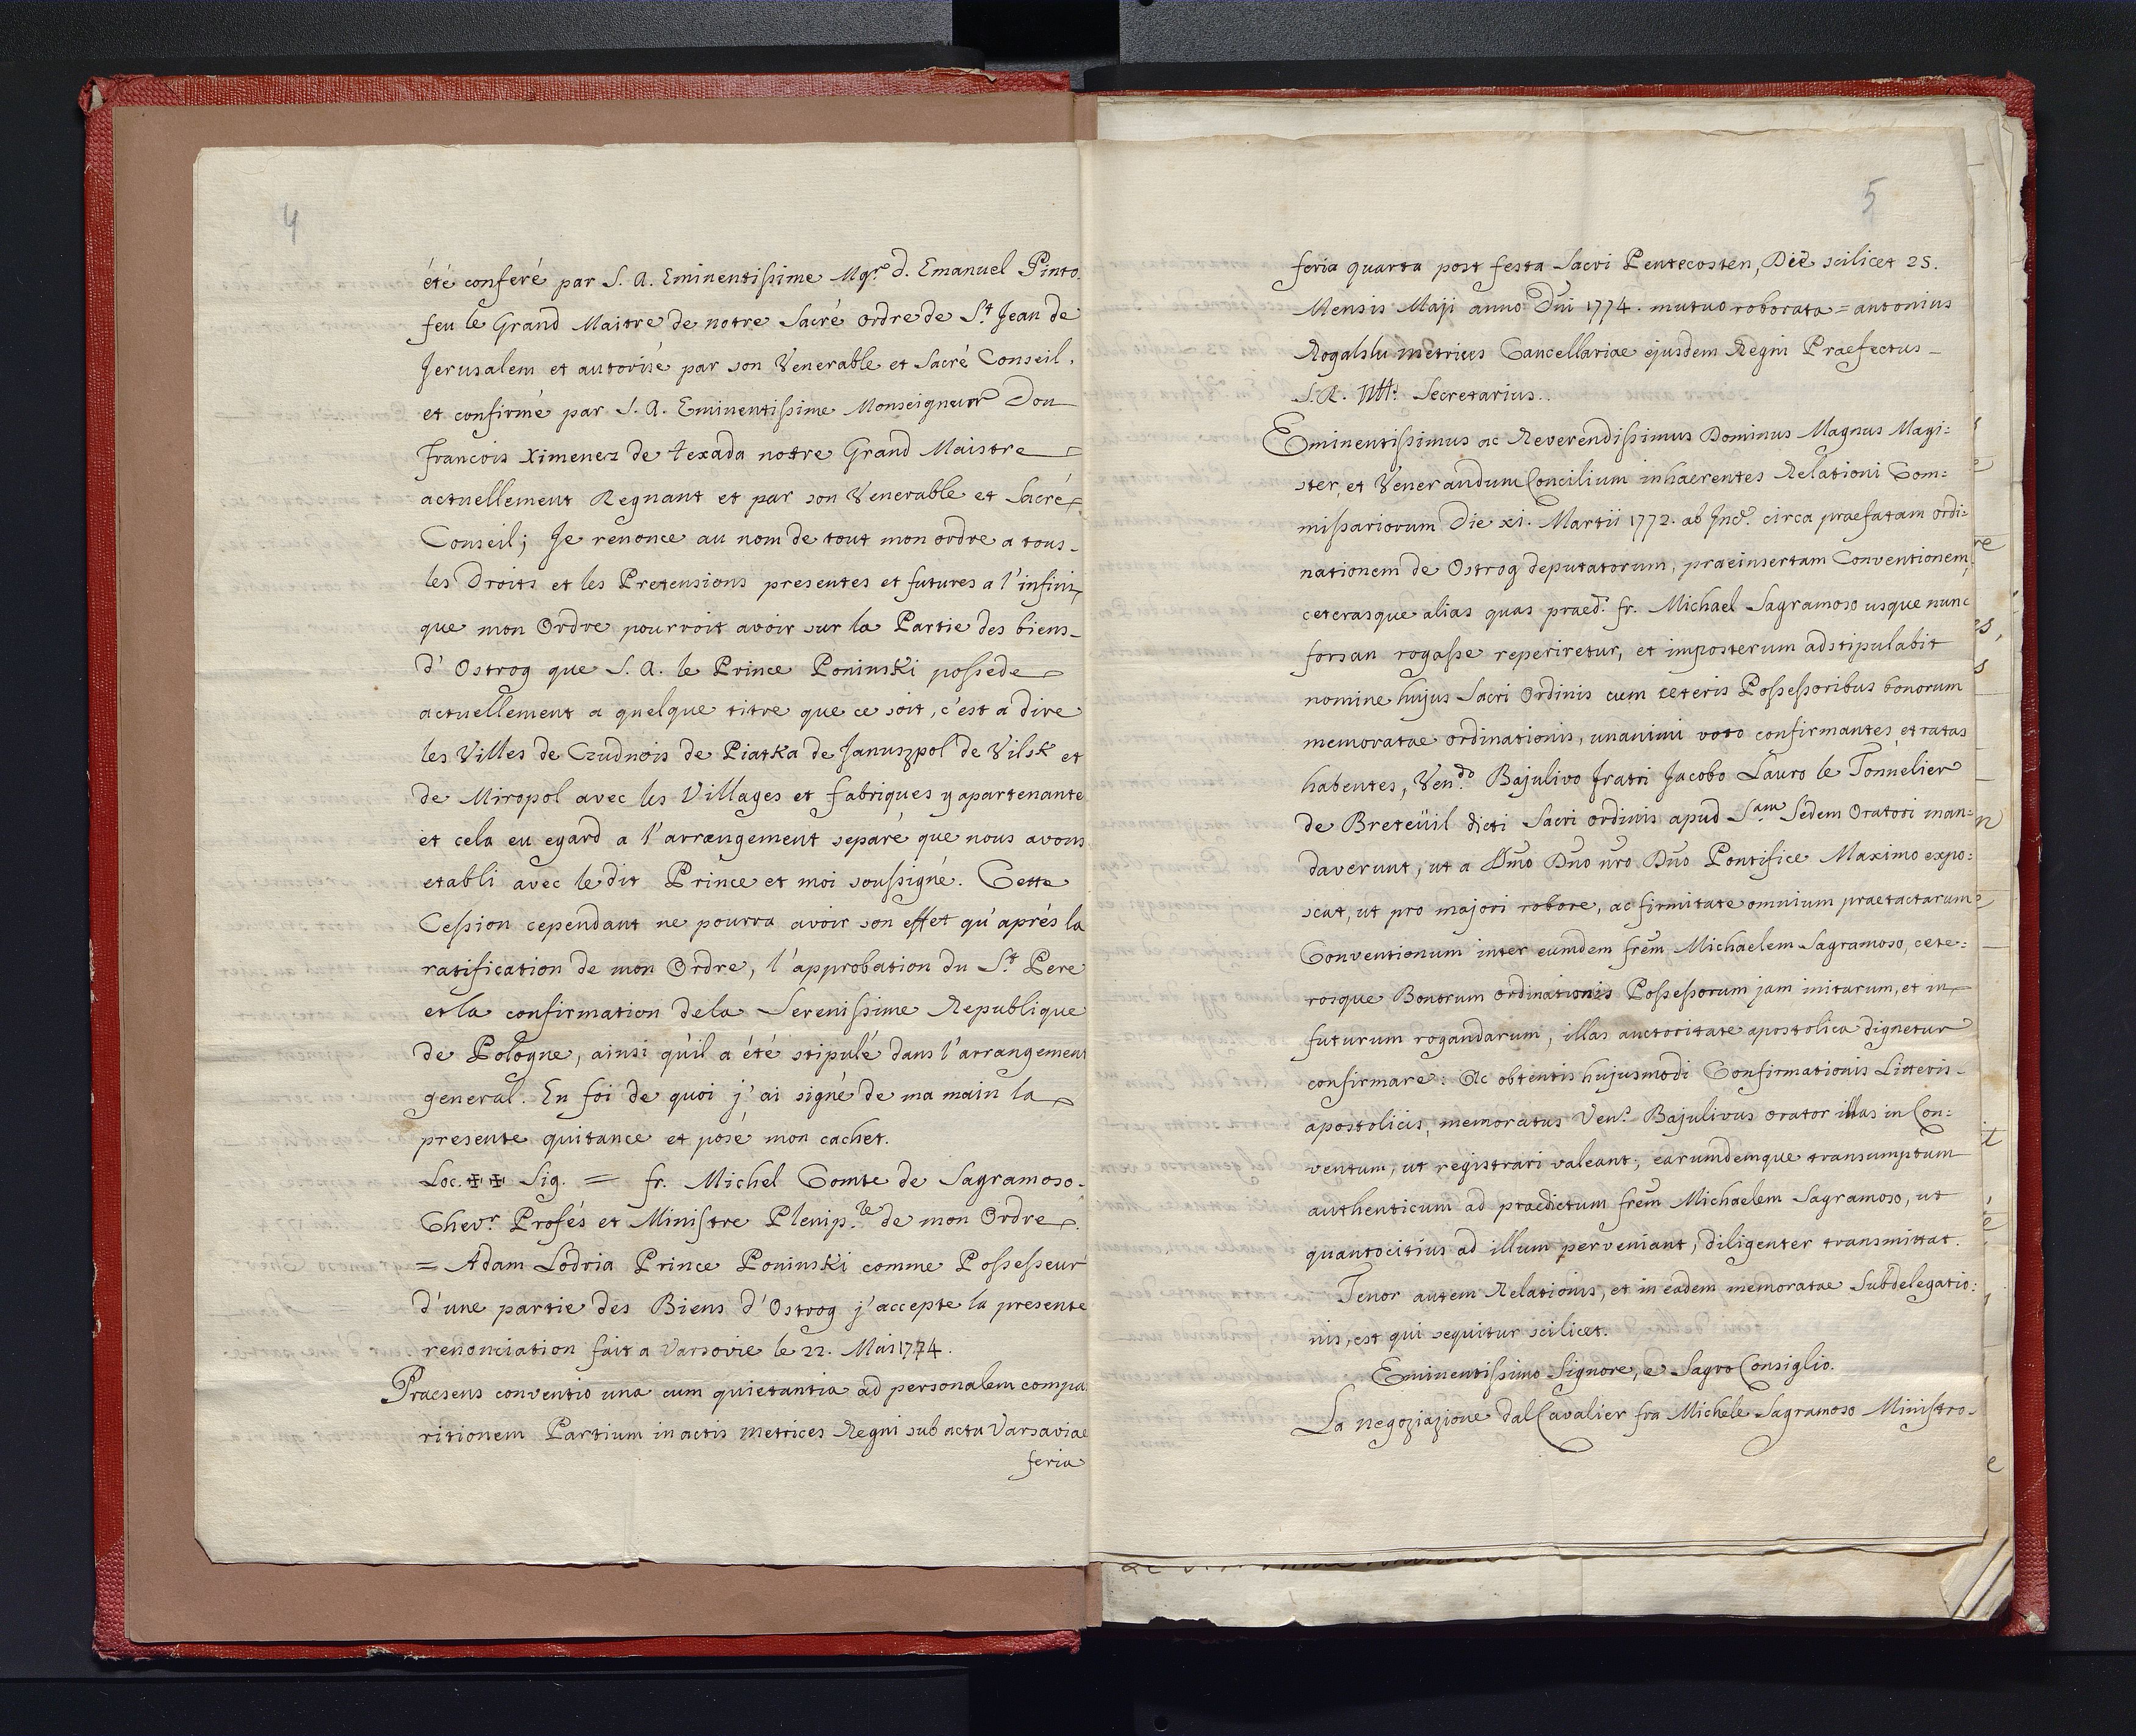 4
été conferé par S. A. Eminentissime Mgr. d. Emanuel Pinto
feu le Grand Maitre de notre Sacré ordre de St. Jean de
Jerusalem et autorisé par son Venerable et Sacré Conseil,
et confirmé par S. A. Eminentissime Monseigneur Don
Francois Ximenez de texada notre Grand Maistre
actuellement Regnant et par son Venerable et Sacré
Conseil; Je renonce au nom de tout mon ordre a tous
les Droits et les Pretensions presentes et futures a l'infini
que mon Ordre pourroit avoir sur la Partie des biens
d'Ostrog que S. A. le Prince Poninski possede
actuellement a quelque titre que ce soit, c'est a dire
les Villes de Czudnois de Piatka de Januszpol de Vilsk et
de Miropol avec les Villages et fabriques y apartenante
et cela eu egard a l'arrangement separé que nous avons
etabli avec le dit Prince et moi soussigné. Cette
Cession cependant ne pourra avoir son effet qu'aprés la
ratification de mon Ordre, l'approbation du St. Pere
et la confirmation de la Serenissime Republique
de Pologne, ainsi qu'il a été stipulé dans l'arrangement
general. En foi de quoi j'ai signé de ma main la
presente quitance et posé mon cachet.
Loc. ✠✠ Sig. = fr. Michel Comte de Sagramoso
Chevr. Profés et Ministre Plenip.re de mon Ordre
= Adam Lodria Prince Poninski comme Possesseur
d'une partie des Biens d'Ostrog j'accepte la presente
renonciation fait a Varsovie le 22. Mai 1774.
Praesens conventio una cum quietantia ad personalem compa
ritionem Partium in actis metrices Regni sub actu Varsaviae
feria
5
feria quarta post festa Sacri Pentecosten, Die scilicet 25.
Mensis Maji anno Dni 1774. mutuo roborata = antonius
Rogalslu metrices Cancellariae ejusdem Regni Praefectus
S. R. Secretarius.
Eminentissimus ac Reverendissimus Dominus Magnus Magi:
ster, et Venerandum Concilium inhaerentes Relationi Com:
missariorum Die xi. Martii 1772. ab Ind. circa praefatam ordi:
nationem de Ostrog deputatorum, praeinsertam Conventionem,
ceterasque alias quas praed. fr. Michael Sagramoso usque nunc
forsan rogasse reperiretur, et imposterum adstipulabit
nomine hujus Sacri Ordinis cum ceteris Possessoribus bonorum
memoratae ordinationis, unanimi voto confirmantes, et ratas
habentes, Ven.do Bajulivo fratri Jacobo Lauro le Tonnelier
de Breteüil dicti Sacri ordinis apud Sam Sedem Oratori man:
daverunt, ut a Smo Dno nro Dno Pontifice Maximo expo:
scat, ut pro majori robore, ac firmitate omnium praetactarum
Conventionum inter eumdem frem Michaelem Sagramoso, cete:
rosque Bonorum ordinationis Possessorum jam initarum, et in
futurum rogandarum, illas auctoritate apostolica dignetur
confirmare: Ac obtentis hujusmodi Confirmationis Litteris
apostolicis, memoratus Ven. Bajulivus orator illas in Con:
ventum, ut registrari valeant, earumdemque transumptum
authenticum ad praedictum frem Michaelem Sagramoso, ut
quantocitius ad illum perveniant, diligenter transmittat.
Tenor autem Relationis, et in eadem memoratae Subdelegatio:
nis, est qui sequitur scilicet.
Eminentissimo Signore, e Sagro Consiglio.
La negoziazione dal Cavalier fra Michele Sagramoso Ministro